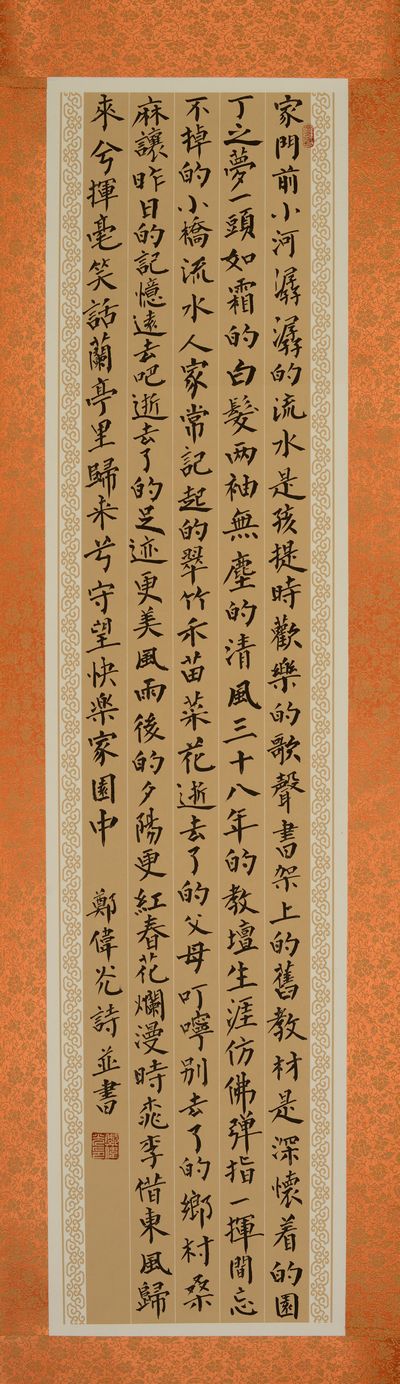 家門前小河潺潺的流水是孩提時歡樂的歌聲書架上的舊教材是深懷着的園
丁之夢一頭如霜的白髮两袖無塵的清風三十八年的教壇生涯仿佛弹指一揮間忘
不掉的小橋流水人家常記起的翠竹禾苗菜花逝去了的父母叮嚀别去了的鄉村桑
麻讓昨日的記憶遠去吧逝去了的足迹更美風雨後的夕陽更紅春花爛漫時桃李借東風歸
來兮揮毫笑話蘭亭里歸来兮守望快楽家園中 鄭偉光詩並書